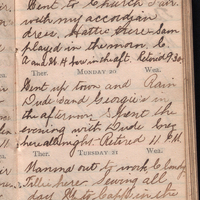 Went to Church Fair
with my accordian
dress. Hattie here Sam
played in the morn. C
A and H 4 hrs in th aft. Retired 9.30
Ther. MONDAY 20 Wea.
Went up town and Rain
Dude's and Georgie's in
the afternoon Spent the
evening with Dude low
here all night. Retired 11 P.M.
Ther. TUESDAY 21 Wea.
Mamma out to work Cloudy
Tillie here. Sewing all
day. Up to in the